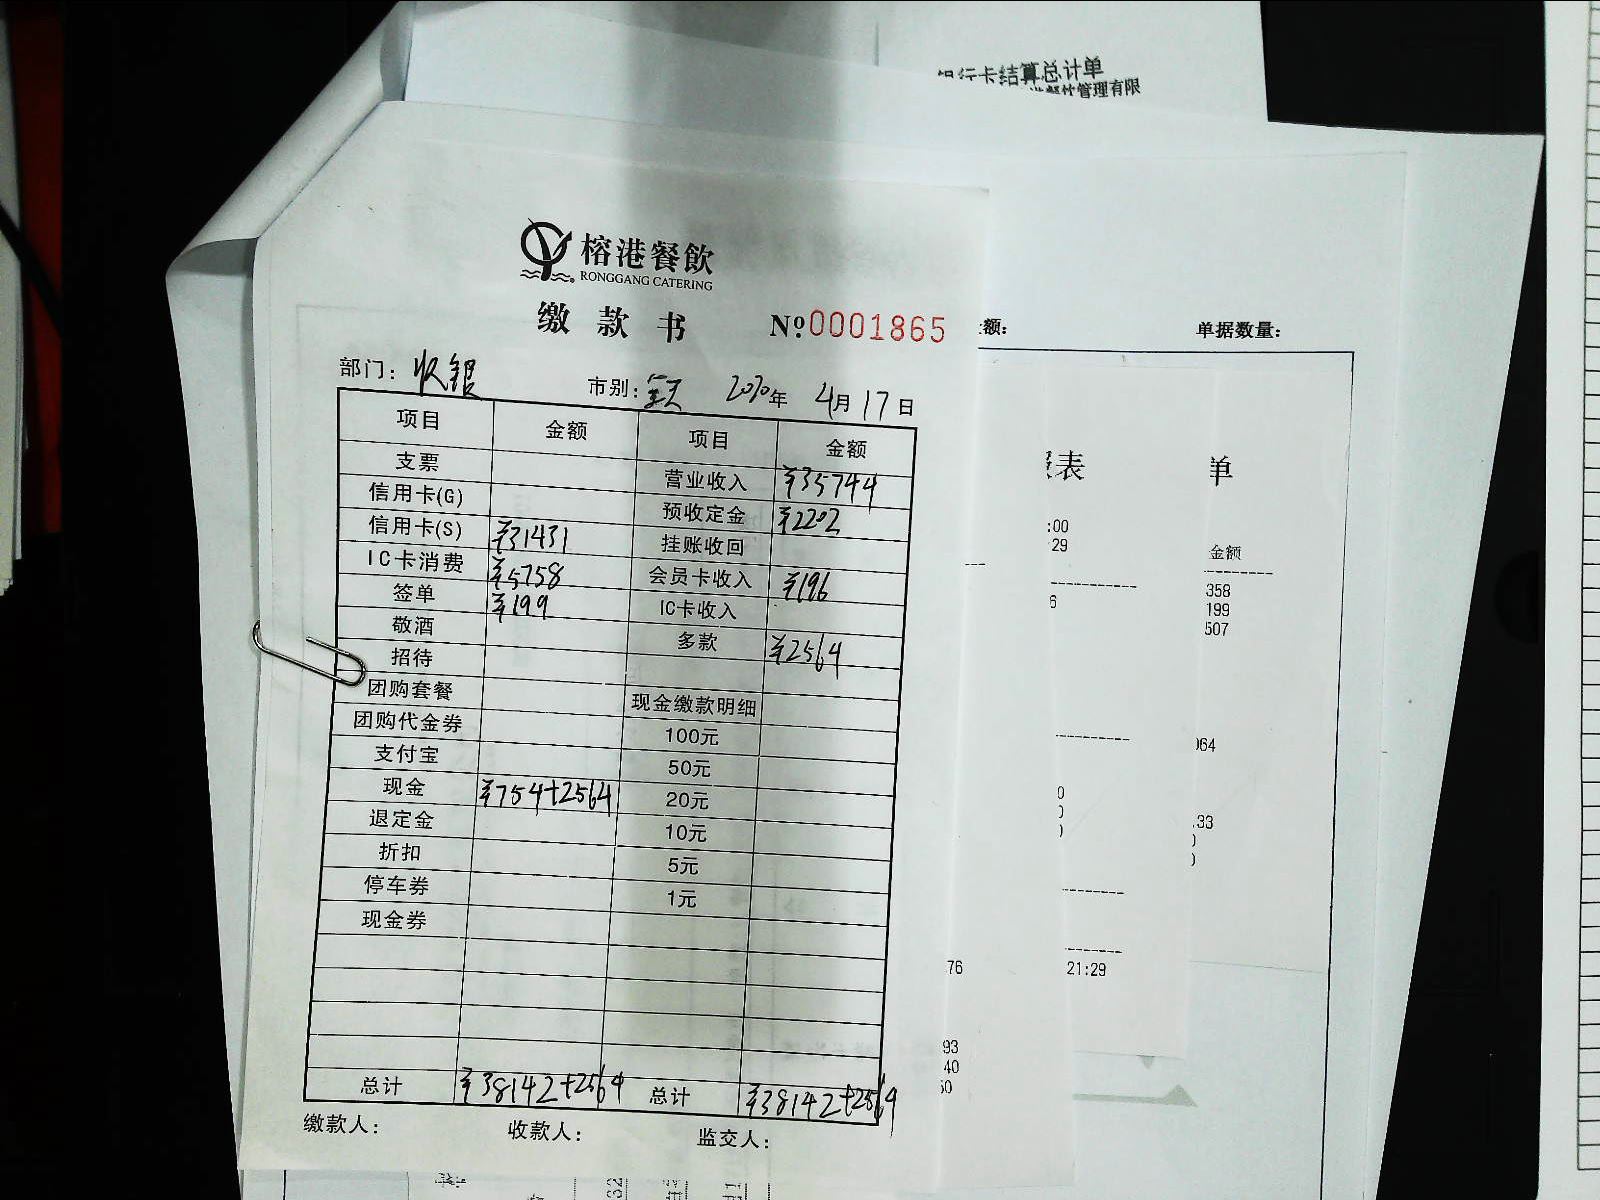 银行卡结算总计单
餐饮管理有限
榕港餐飲
RONGGANG CATERING
缴款书 №0001865
额: 单据数量:
部门: 收银 市别: 全天 2020年 4月17日
项目 金额 项目 金额
支票 营业收入 ¥35744
信用卡(G) 预收定金 ¥2202
信用卡(S) ¥31431 挂账收回
IC卡消费 ¥5758 会员卡收入 ¥196
签单 ¥199 IC卡收入
敬酒 多款 ¥2564
招待
团购套餐 现金缴款明细
团购代金券 100元
支付宝 50元
现金 ¥754+2564 20元
退定金 10元
折扣 5元
停车券 1元
现金券
总计 ¥38142+2564 总计 ¥38142+2564
缴款人: 收款人: 监交人:
表 单
:00
29 金额
358
6 199
507
964
0
.33
76 21:29
93
40
50